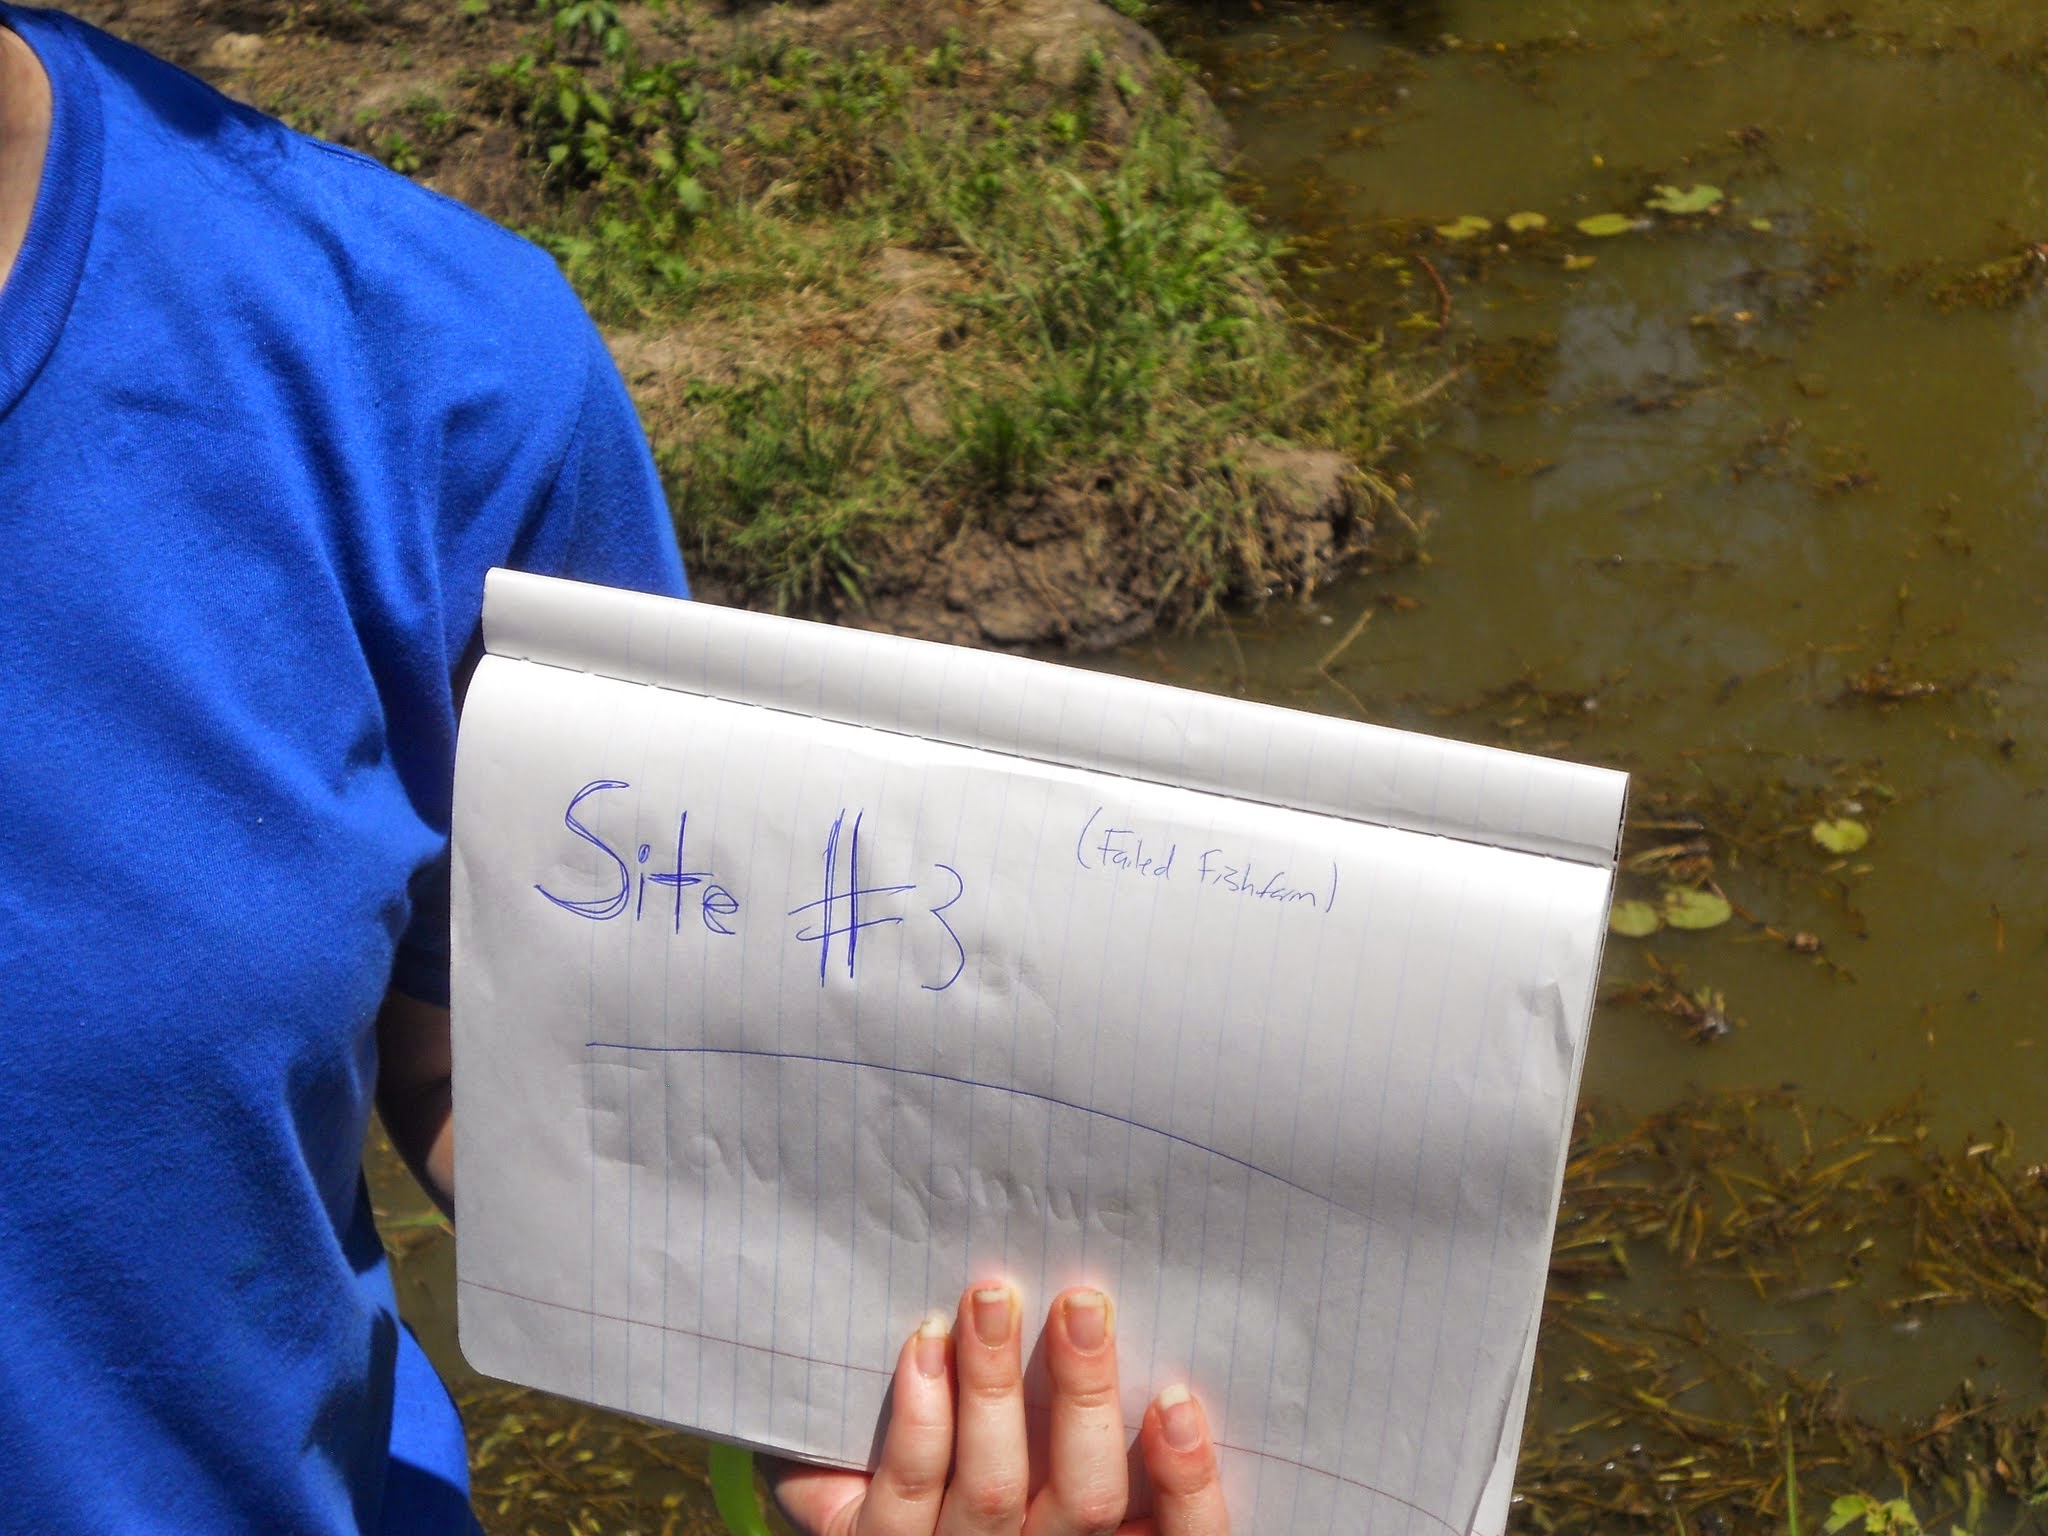 Site #3 (Failed Fishfarm)